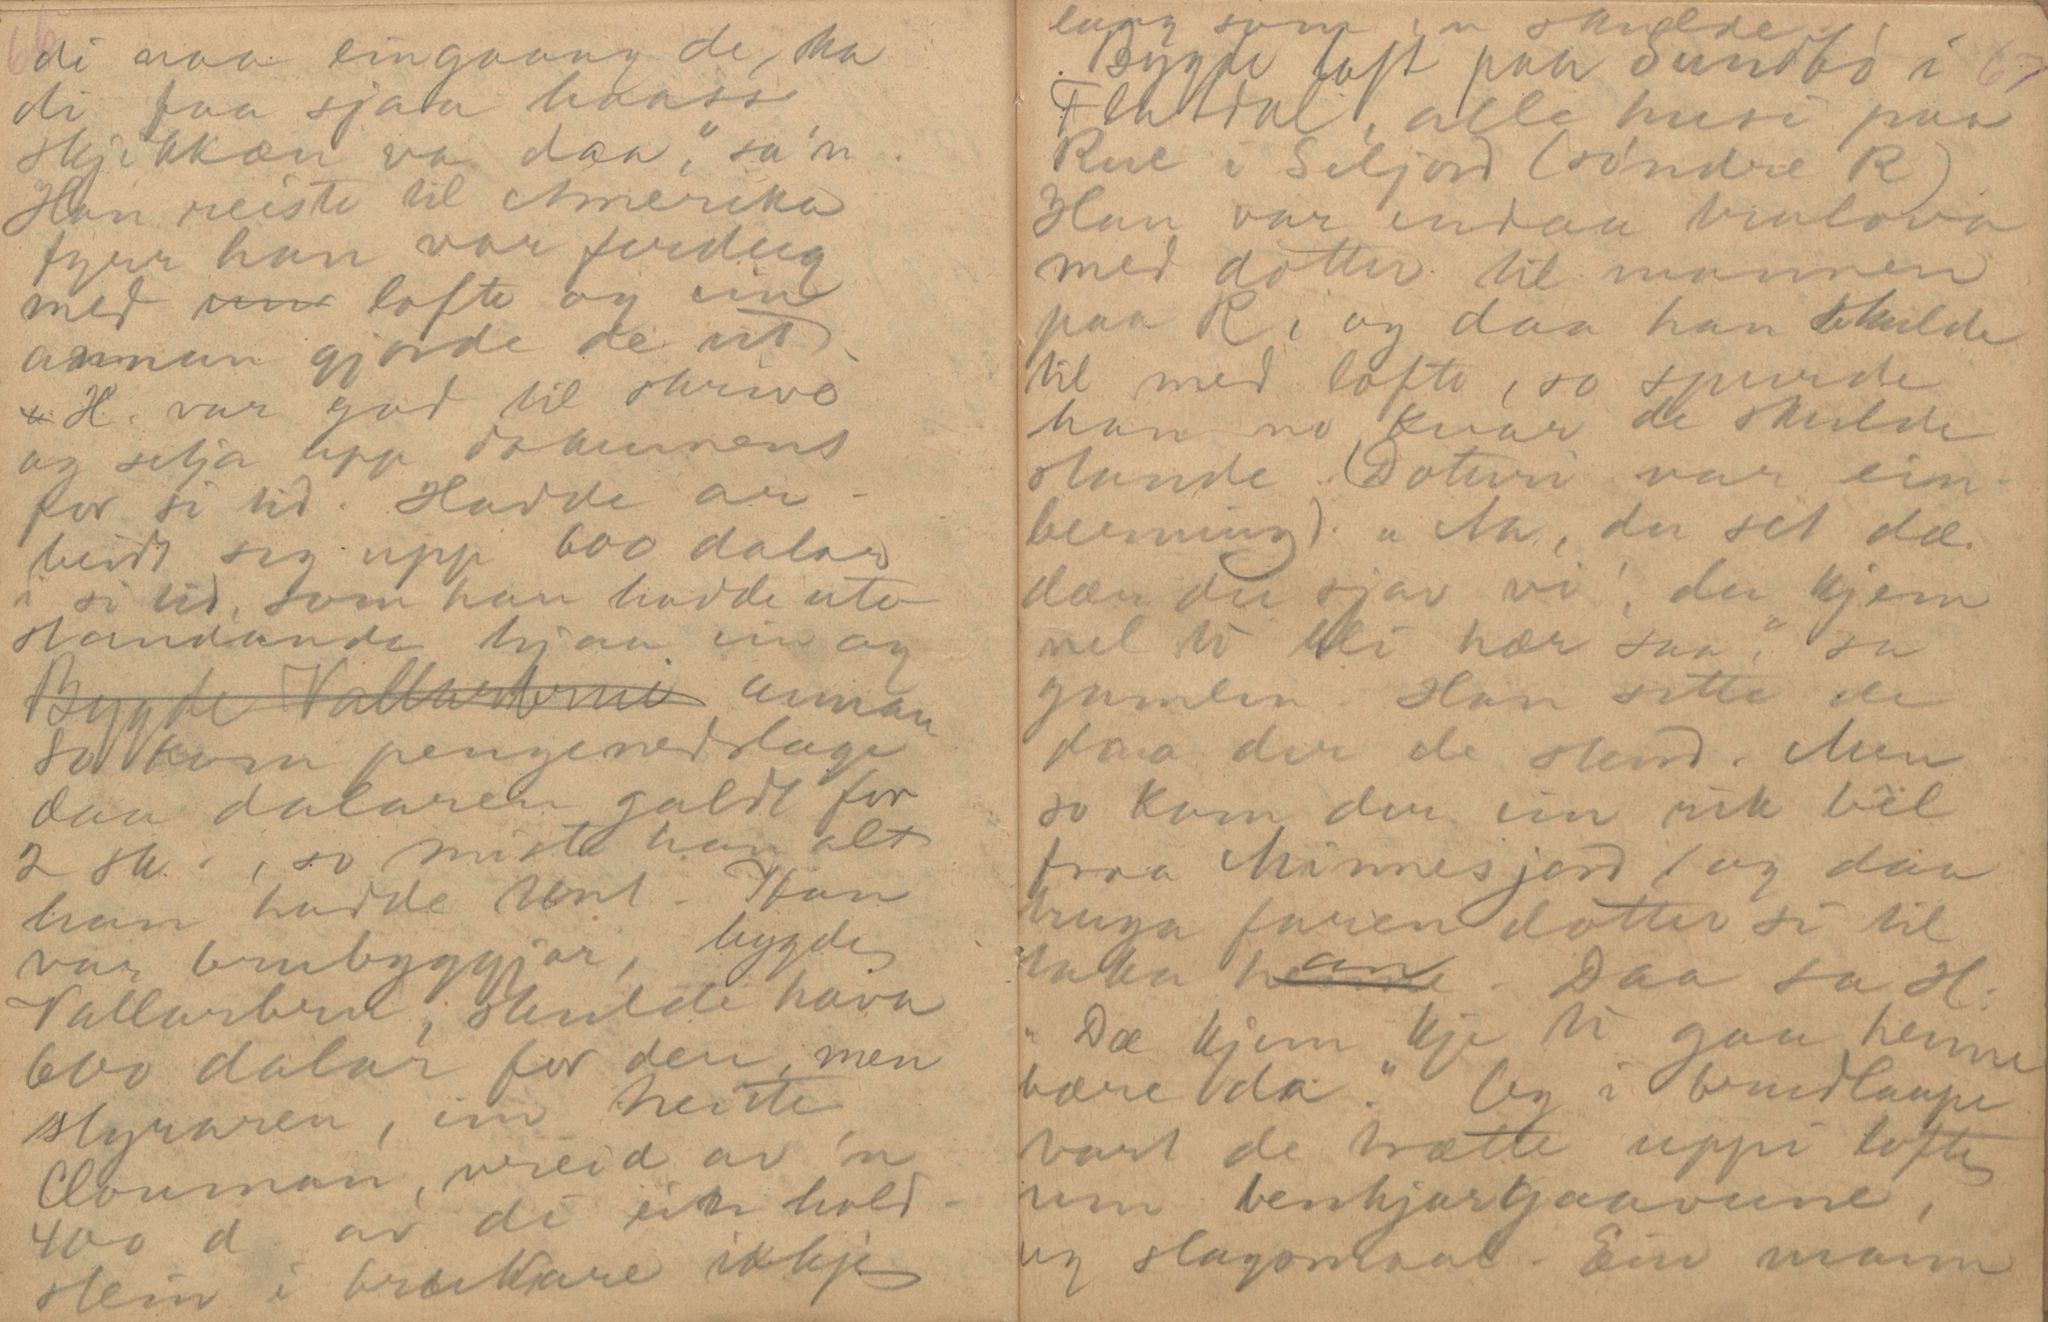 66
di naa eingaang de, ka
di faa sjaa haass
skjikkæn va daa," sa'n.
Han reiste til Amerika
fyrr han var ferdug
med ein lofte og ein
annan gjorde de ut.
H. var god til skrive
og setja upp dokument
for si tid. Hadde ar-
beidt seg upp 600 dalar
i si tid, som han hadde uto
standande hjaa ein og
Bygde Vallarbrui annan
So kom pengenedslage
daa dalaren galdt for
2 sk., so miste han alt
han hadde tent. Han
var brubyggjar, bygde
Vallarbrui, skulde hava
600 dalar for den, men
styraren, ein heite
Clouman, vreid av 'n
400 d. av di ein hald-
stein i brukare ikkje
67
lang som 'n skulde.
Bygde loft paa Sundbø i
Flatdal, alle husi paa
Rue i Seljord (søndre R)
Han var endaa trulova
med dotter til mannen
paa R, og daa han skulde
til med lofte, so spurde
han no kvar de skulde
stande. (Dotteri var ein-
berning). "Aa, du set dæ.
dær du sjav vi', du kjem
vel ti bli hær saa," sa
gamlen. Han sette de
daa der de stend. Men
so kom der ein rik bel
fraa Minnesjord, og daa
truga faren dotter si til
taka henne han. Daa sa H:
"Dæ kjem kje ti gaa henne
bære da." Og i brudlaupe
vart de trætte uppi lofte
um benkjargaavune,
og slagsmaal. Ein mann